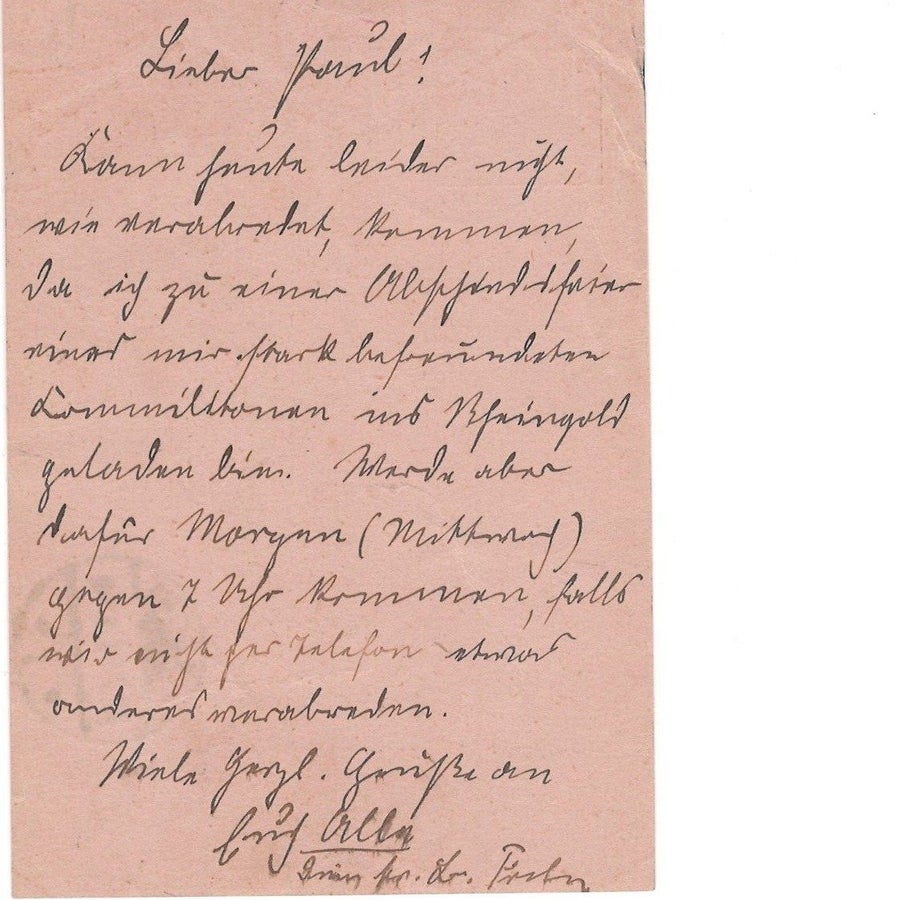 Lieber Paul!
Kann heute leider nicht,
wie verabredet, kommen,
da ich zu einer Abschiedsfeier
eines mir stark befreundeten
Kommilitonen ins Rheingold
geladen bin. Werde aber
dafür Morgen (Mittwoch)
gegen 7 Uhr kommen, falls
wir nicht per Telefon etwas
anderes verabreden.
Viele herzl. Grüße an
Euch Alle